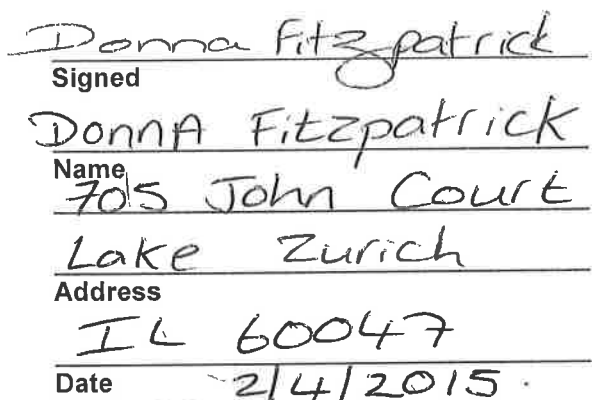 Donna Fitzpatrick
Signed
DonnA Fitzpatrick
Name
705 John Court
Lake Zurich
Address
IL 60047
Date 2/4/2015.